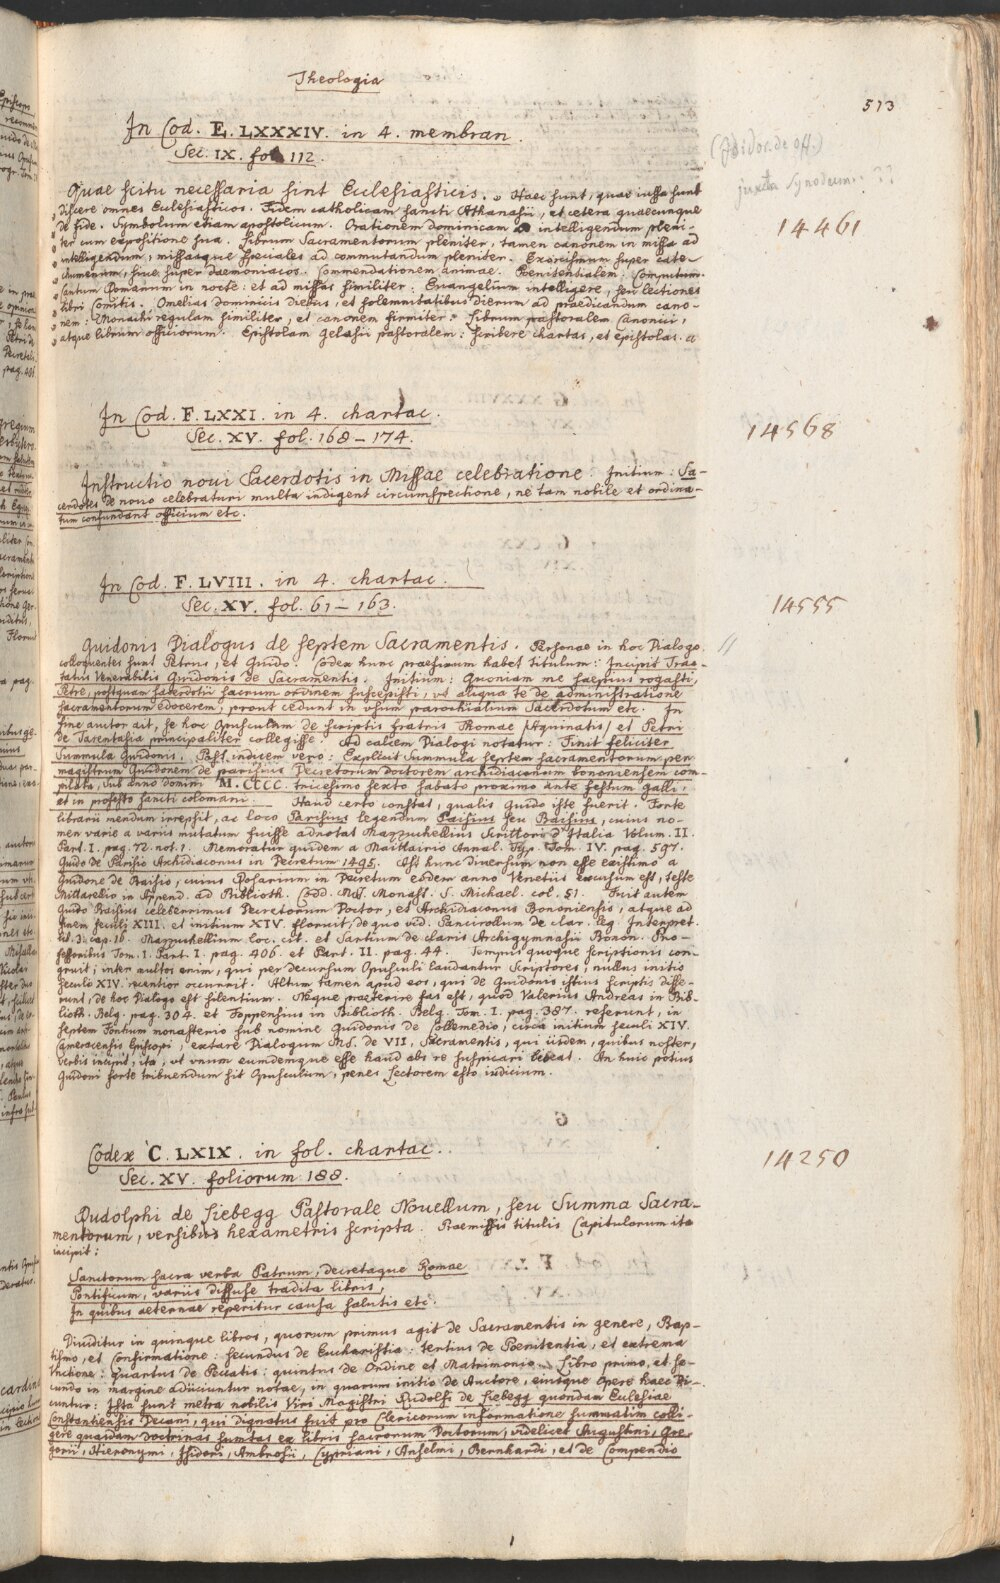 Theologia
513
In Cod. E. LXXXIV. in 4. membran.
Sec. IX. fol. 112.
(Isidor. de off.)
juxta Synodum. ??
14461
Quae scitu necessaria sint Ecclesiasticis. „ Haec sunt, quae iussa sunt
„ discere omnes Ecclesiasticos. Fidem catholicam sancti Athanasii, et cetera quaecunque
„ de fide. Symbolum etiam apostolicum. Orationem dominicam ad intelligendum pleni-
„ ter cum expositione sua. Librum Sacramentorum pleniter, tamen canonem in missa ad
„ intelligendum, missasque speciales ad commutandum pleniter. Exorcismum super cate-
„ chumenum, sive super daemoniacos. Commendationem animae. Poenitentialem. Computum.
„ Cantum Romanum in nocte: et ad missas similiter. Euangelium intelligere, seu lectiones
„ libri Comitis. Omelias dominicis diebus, et solemnitatibus dierum ad praedicandum cano-
„ nem: Monachi regulam similiter, et canonem firmiter. Librum pastoralem Canonici,
„ atque librum officiorum. Epistolam Gelasii pastoralem: scribere chartas, et epistolas. a
In Cod. F. LXXI. in 4. chartac.
Sec. XV. fol. 168–174.
14568
Instructio novi Sacerdotis in Missae celebratione. Initium: Sa-
cerdotes de novo celebraturi multa indigent circumspectione, ne tam nobile et ordina-
tum confundant officium etc.
In Cod. F. LVIII. in 4. chartac.
Sec. XV. fol. 61–163.
14555
Guidonis Dialogus de septem Sacramentis. Personae in hoc Dialogo
colloquentes sunt Petrus, et Guido. Codex hunc praefixum habet titulum: Incipit Trac-
tatus Venerabilis Guidonis de Sacramentis. Initium: Quoniam me saepius rogasti,
Petre, postquam sacerdotii sacrum ordinem suscepisti, ut aliqua te de administratione
sacramentorum edocerem, prout cedunt in usum parochialium Sacerdotum etc. In
fine auctor ait, se hoc Opusculum de scriptis fratris Thomae (Aquinatis) et Petri
de Tarentasia principaliter collegisse. Ad calcem Dialogi notatur: Finit feliciter
Summula Guidonis. Post indicem vero: Explicit Summula septem sacramentorum per
magistrum Guidonem de parisius Decretorum doctorem archidiaconum bononiensem com-
pilata, sub anno domini M.CCCC. tricesimo sexto sabato proximo ante festum Galli,
et in profesto sancti colomani. Haud certo constat, qualis Guido iste fuerit. Forte
librarii mendum irrepsit, ac loco Parisius legendum Paisius seu Baisius, cuius no-
men varie a variis mutatum fuisse adnotat Mazzuchellius Scrittori d'Italia Volum. II.
Part. I. pag. 72. not. 1. Memoratur quidem a Maittairio Annal. Typ. Tom. IV. pag. 597.
Guido de Parisio Archidiaconus in Decretum 1495. Ast hunc diversum non esse existimo a
Guidone de Baisio, cuius Rosarium in Decretum eodem anno Venetiis excusum est, teste
Mittarellio in Append. ad Biblioth. Codd. Mss. Monast. S. Michael. col. 51. Fuit autem
Guido Baisius celeberrimus Decretorum Doctor, et Archidiaconus Bononiensis, atque ad
finem seculi XIII. et initium XIV. floruit, de quo vid. Pancirollum de clar. leg. Interpret.
lib. 3. cap. 16. Mazzuchellium loc. cit. et Sartium de claris Archigymnasii Bonon. Pro-
fessoribus Tom. I. Part. I. pag. 406. et Part. II. pag. 44. Tempus quoque scriptionis con-
gruit; inter auctores enim, qui per decursum Opusculi laudantur Scriptores, nullus initio
seculo XIV. recentior occurrit. Altum tamen apud eos, qui de Guidonis istius scriptis disse-
runt, de hoc Dialogo est silentium. Neque praeterire fas est, quod Valerius Andreas in Bib-
lioth. Belg. pag. 304. et Foppensius in Biblioth. Belg. Tom. I. pag. 387. referunt, in
septem Fontium monasterio sub nomine Guidonis de Collemedio, circa initium seculi XIV.
Cameracensis Episcopi, extare Dialogum MS. de VII. Sacramentis, qui iisdem, quibus noster,
verbis incipit, ita, ut unum eumdemque esse haud abs re suspicari liceat. An huic potius
Guidoni forte tribuendum sit Opusculum, penes Lectorem esto iudicium.
Codex C. LXIX. in fol. chartac.
Sec. XV. foliorum 188.
14250
Rudolphi de Liebegg Pastorale Novellum, seu Summa Sacra-
mentorum, versibus hexametris scripta. Praemissis titulis Capitulorum ita
incipit:
Sanctorum sacra verba Patrum, decretaque Romae
Pontificum, variis diffuse tradita libris,
In quibus aeternae reperitur causa salutis etc.
Dividitur in quinque libros, quorum primus agit de Sacramentis in genere, Bap-
tismo, et Confirmatione: secundus de Eucharistia: tertius de Poenitentia, et extrema
Unctione: quartus de Peccatis: quintus de Ordine et Matrimonio. Libro primo, et se-
cundo in margine adiiciuntur notae, in quarum initio de Auctore, eiusque Opere haec di-
cuntur: Ista sunt metra nobilis Viri Magistri Rudolfi de Liebegg quondam Ecclesiae
Constantiensis Decani, qui dignatus fuit pro Clericorum informatione summatim colli-
gere quasdam doctrinas sumtas ex libris sacrorum Doctorum, videlicet Augustini, Gre-
gorii, Hieronymi, Isidori, Ambrosii, Cypriani, Anselmi, Bernhardi, et de Compendio